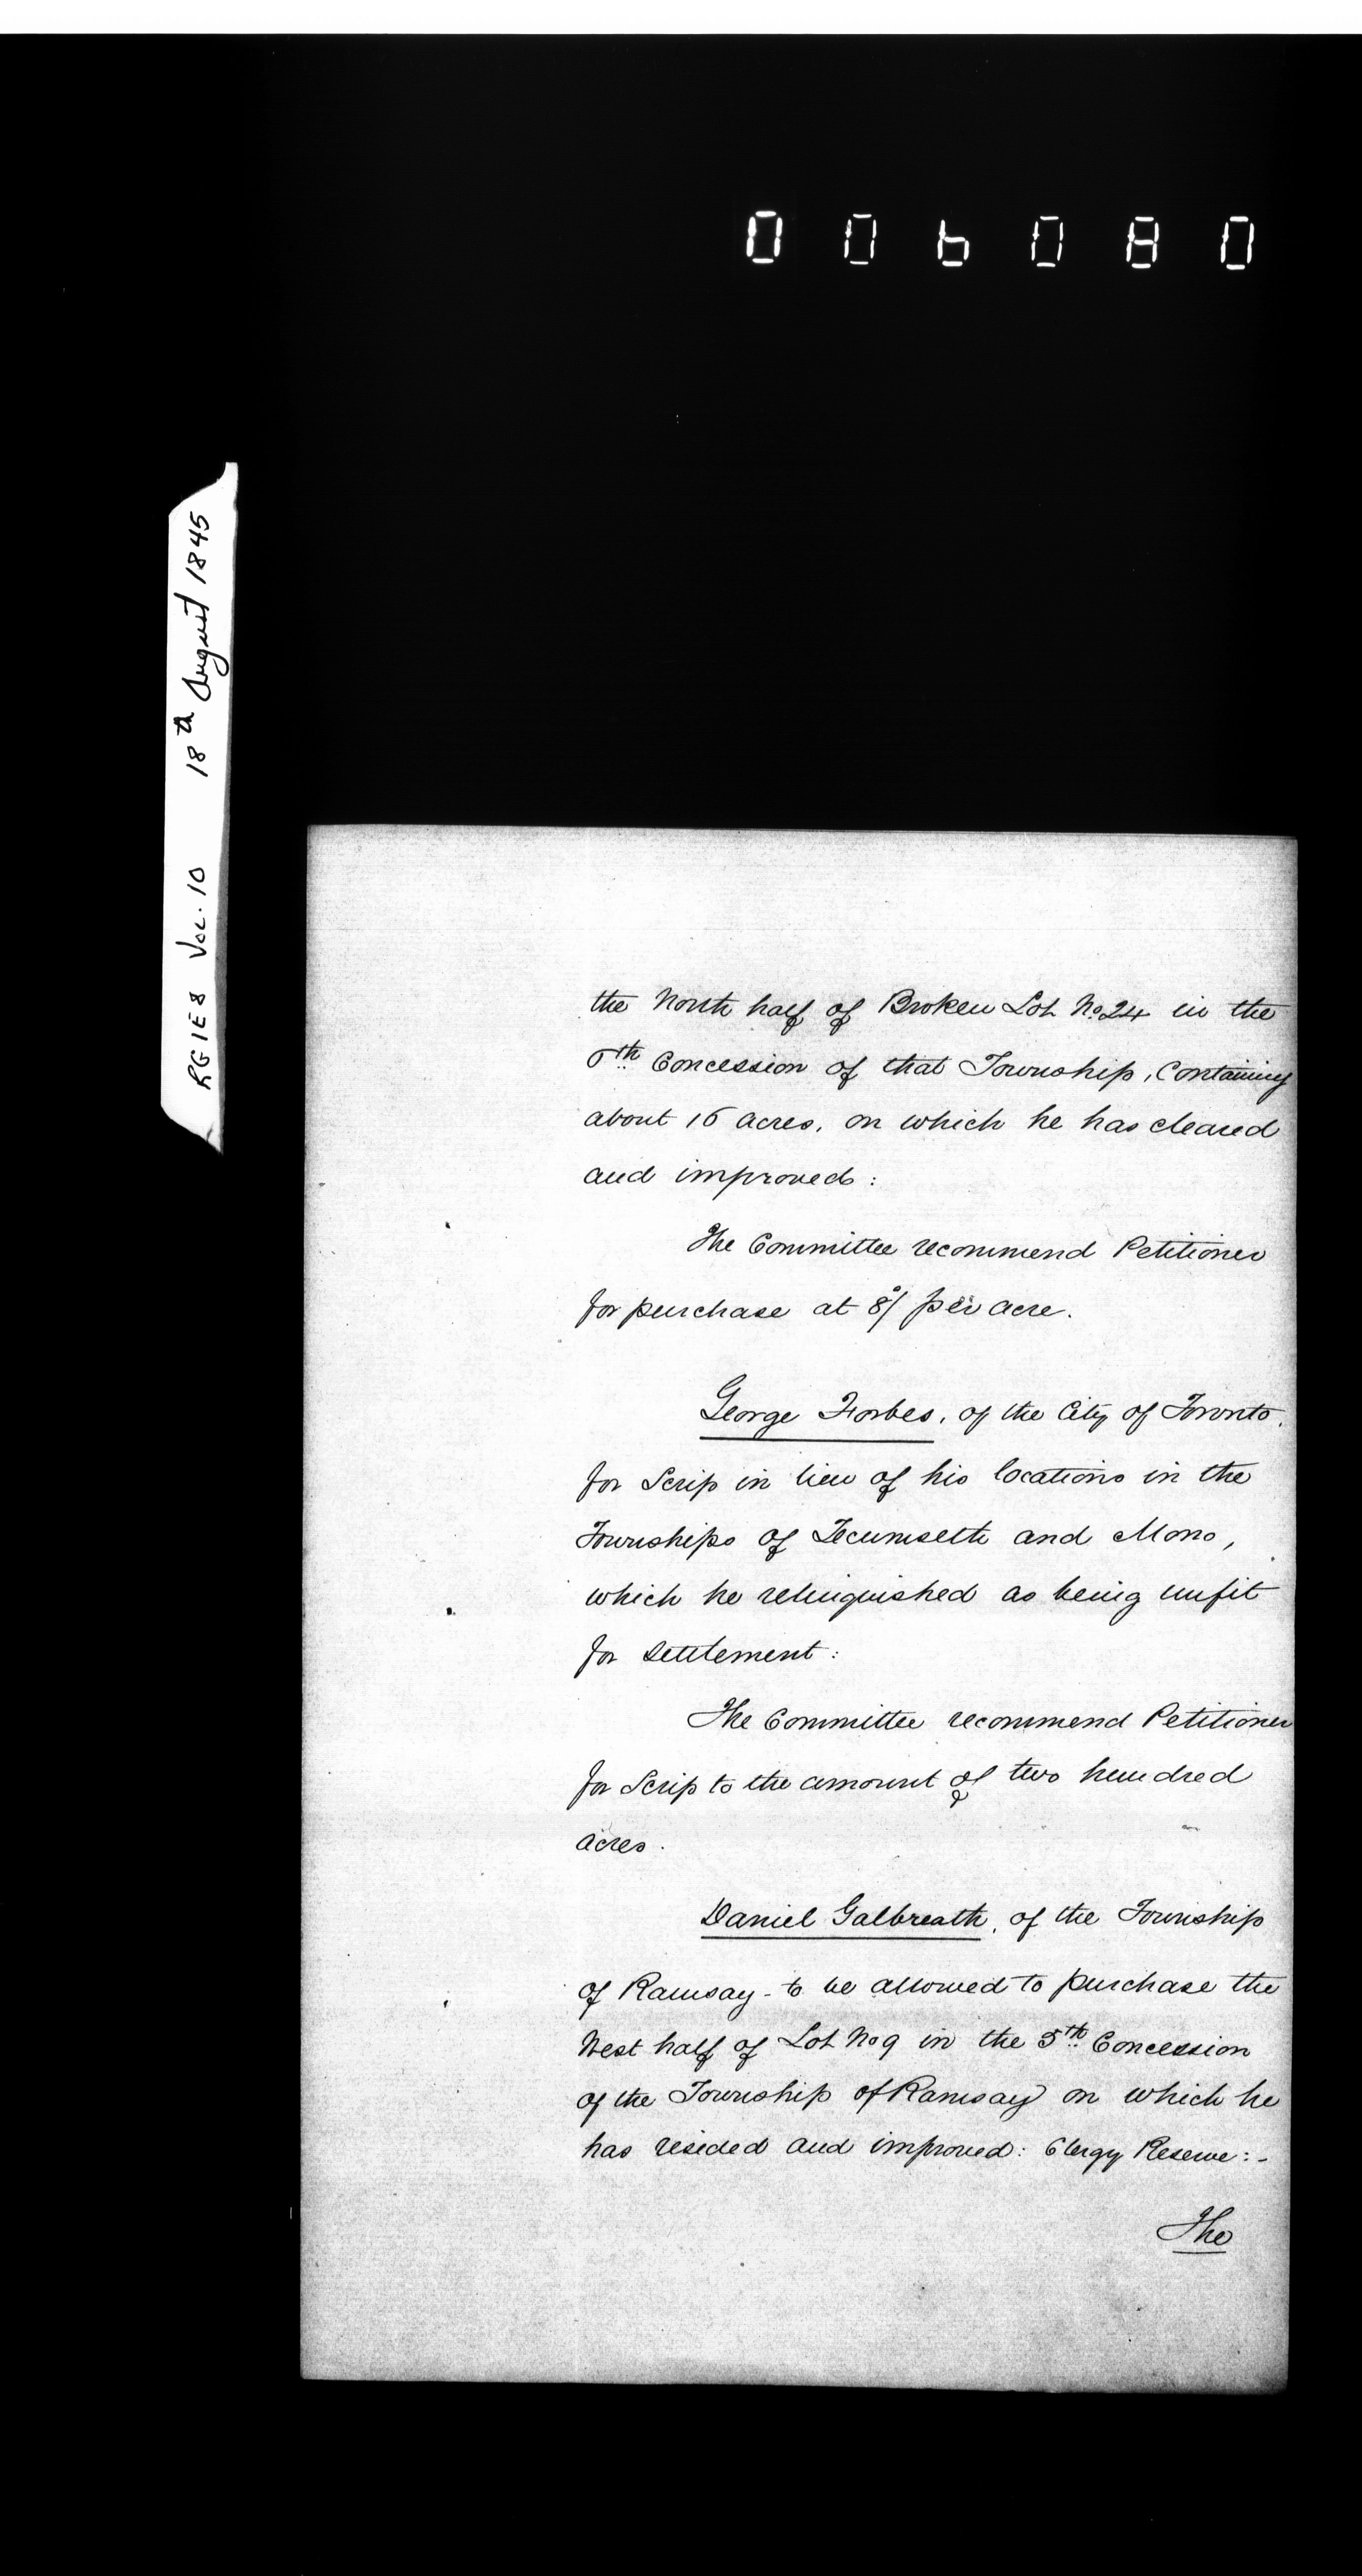 006080
RG1E8 Vol. 10 18th August 1845
the North half of Broken Lot No 24 in the
Concession of that Township, Containing
about acres, on which he has cleared
and improved:
The Committee recommend Petitioner
for purchase at 8/ per acre.
George Forbes, of the City of Toronto.
for Scrip in lieu of his locations in the
Townships of Tecumseth and Mono,
which he relinquished as being unfit
for settlement:
The Committee recommend Petitioner
for Scrip to the amount of two hundred
acres.
Daniel Galbreath, of the Township
of Ramsay - to be allowed to purchase the
West half of Lot No 9 in the 5th Concession
of the Township of Ramsay on which he
has resided and improved: Clergy Reserve:-
The